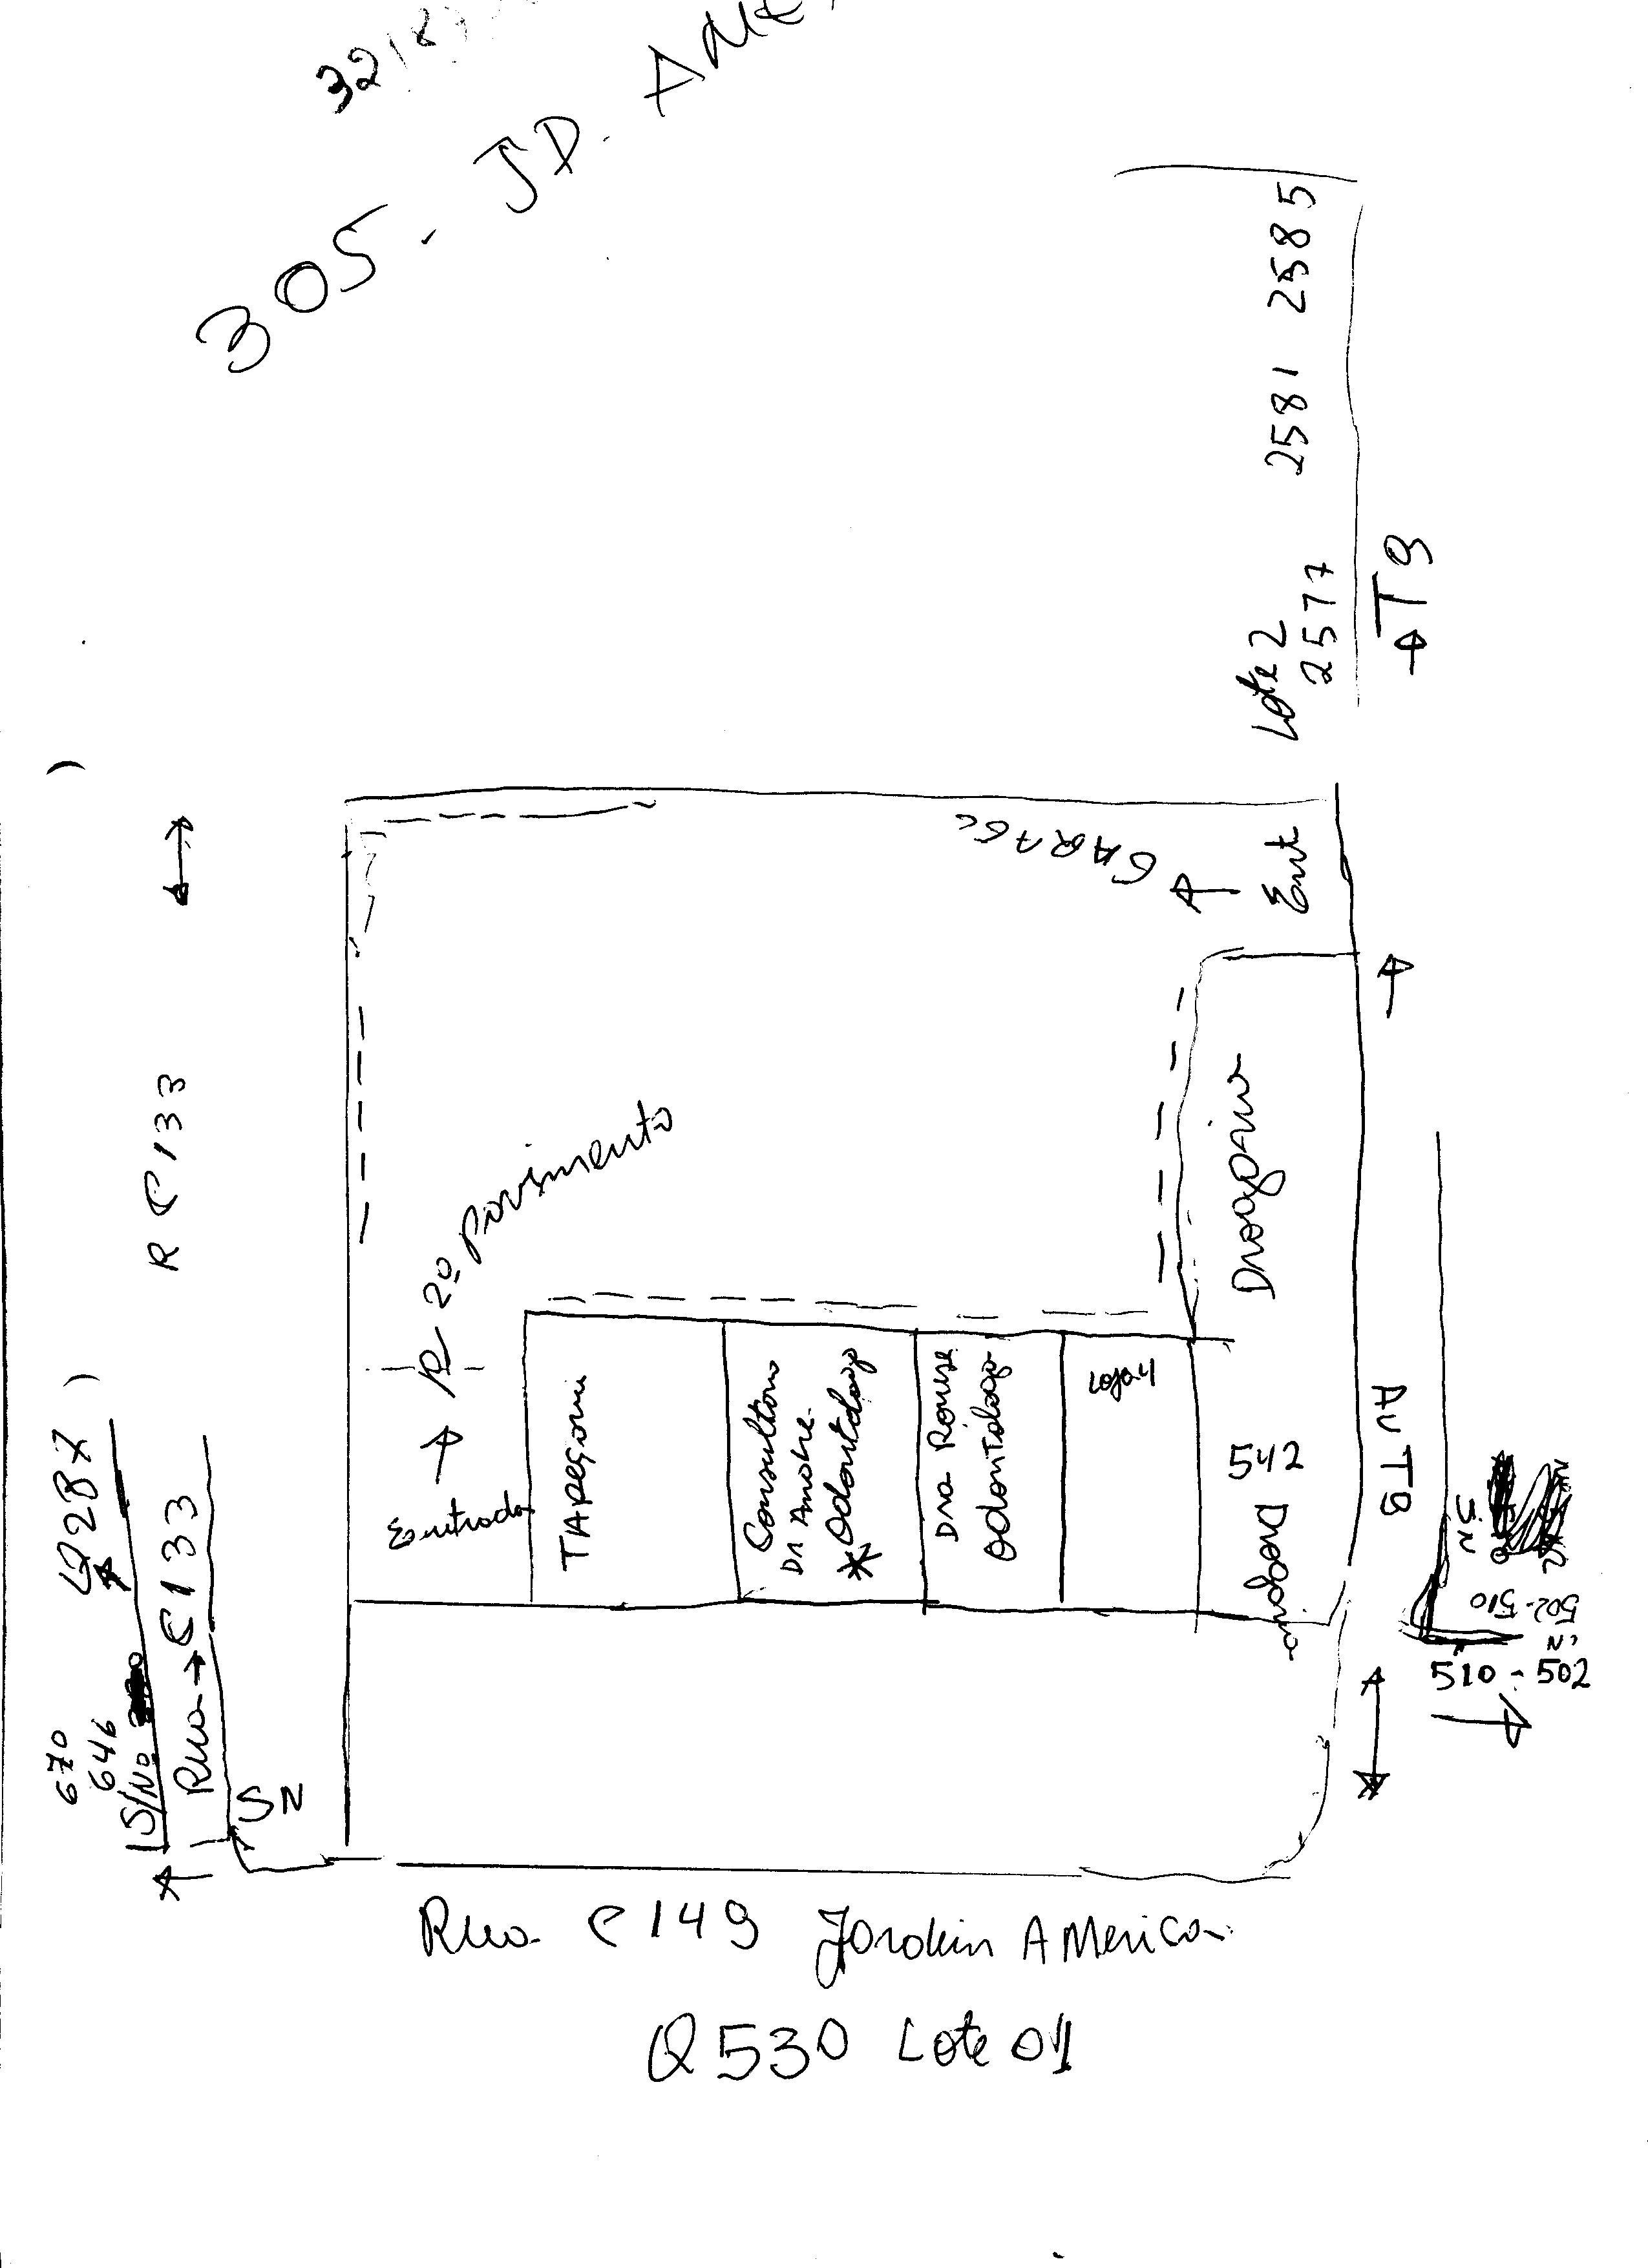 305 - JD. AME
2585
2581
Lote 2
2577
T9
GARAGE
Ent
R C 133
2º Pavimento
Drogaria
Entrada
TAPEÇARIA
Consultorio
Dr Andre
* Odontologo
Dra Rouse
Odontologo
Loja 4
542
Drogaria
Av T9
Q 287
Rua → C 133
S/Nº
670
646
SN
SN
502-510
Nº
510 - 502
Rua C 149 Jardim America
Q 530 Lote 01